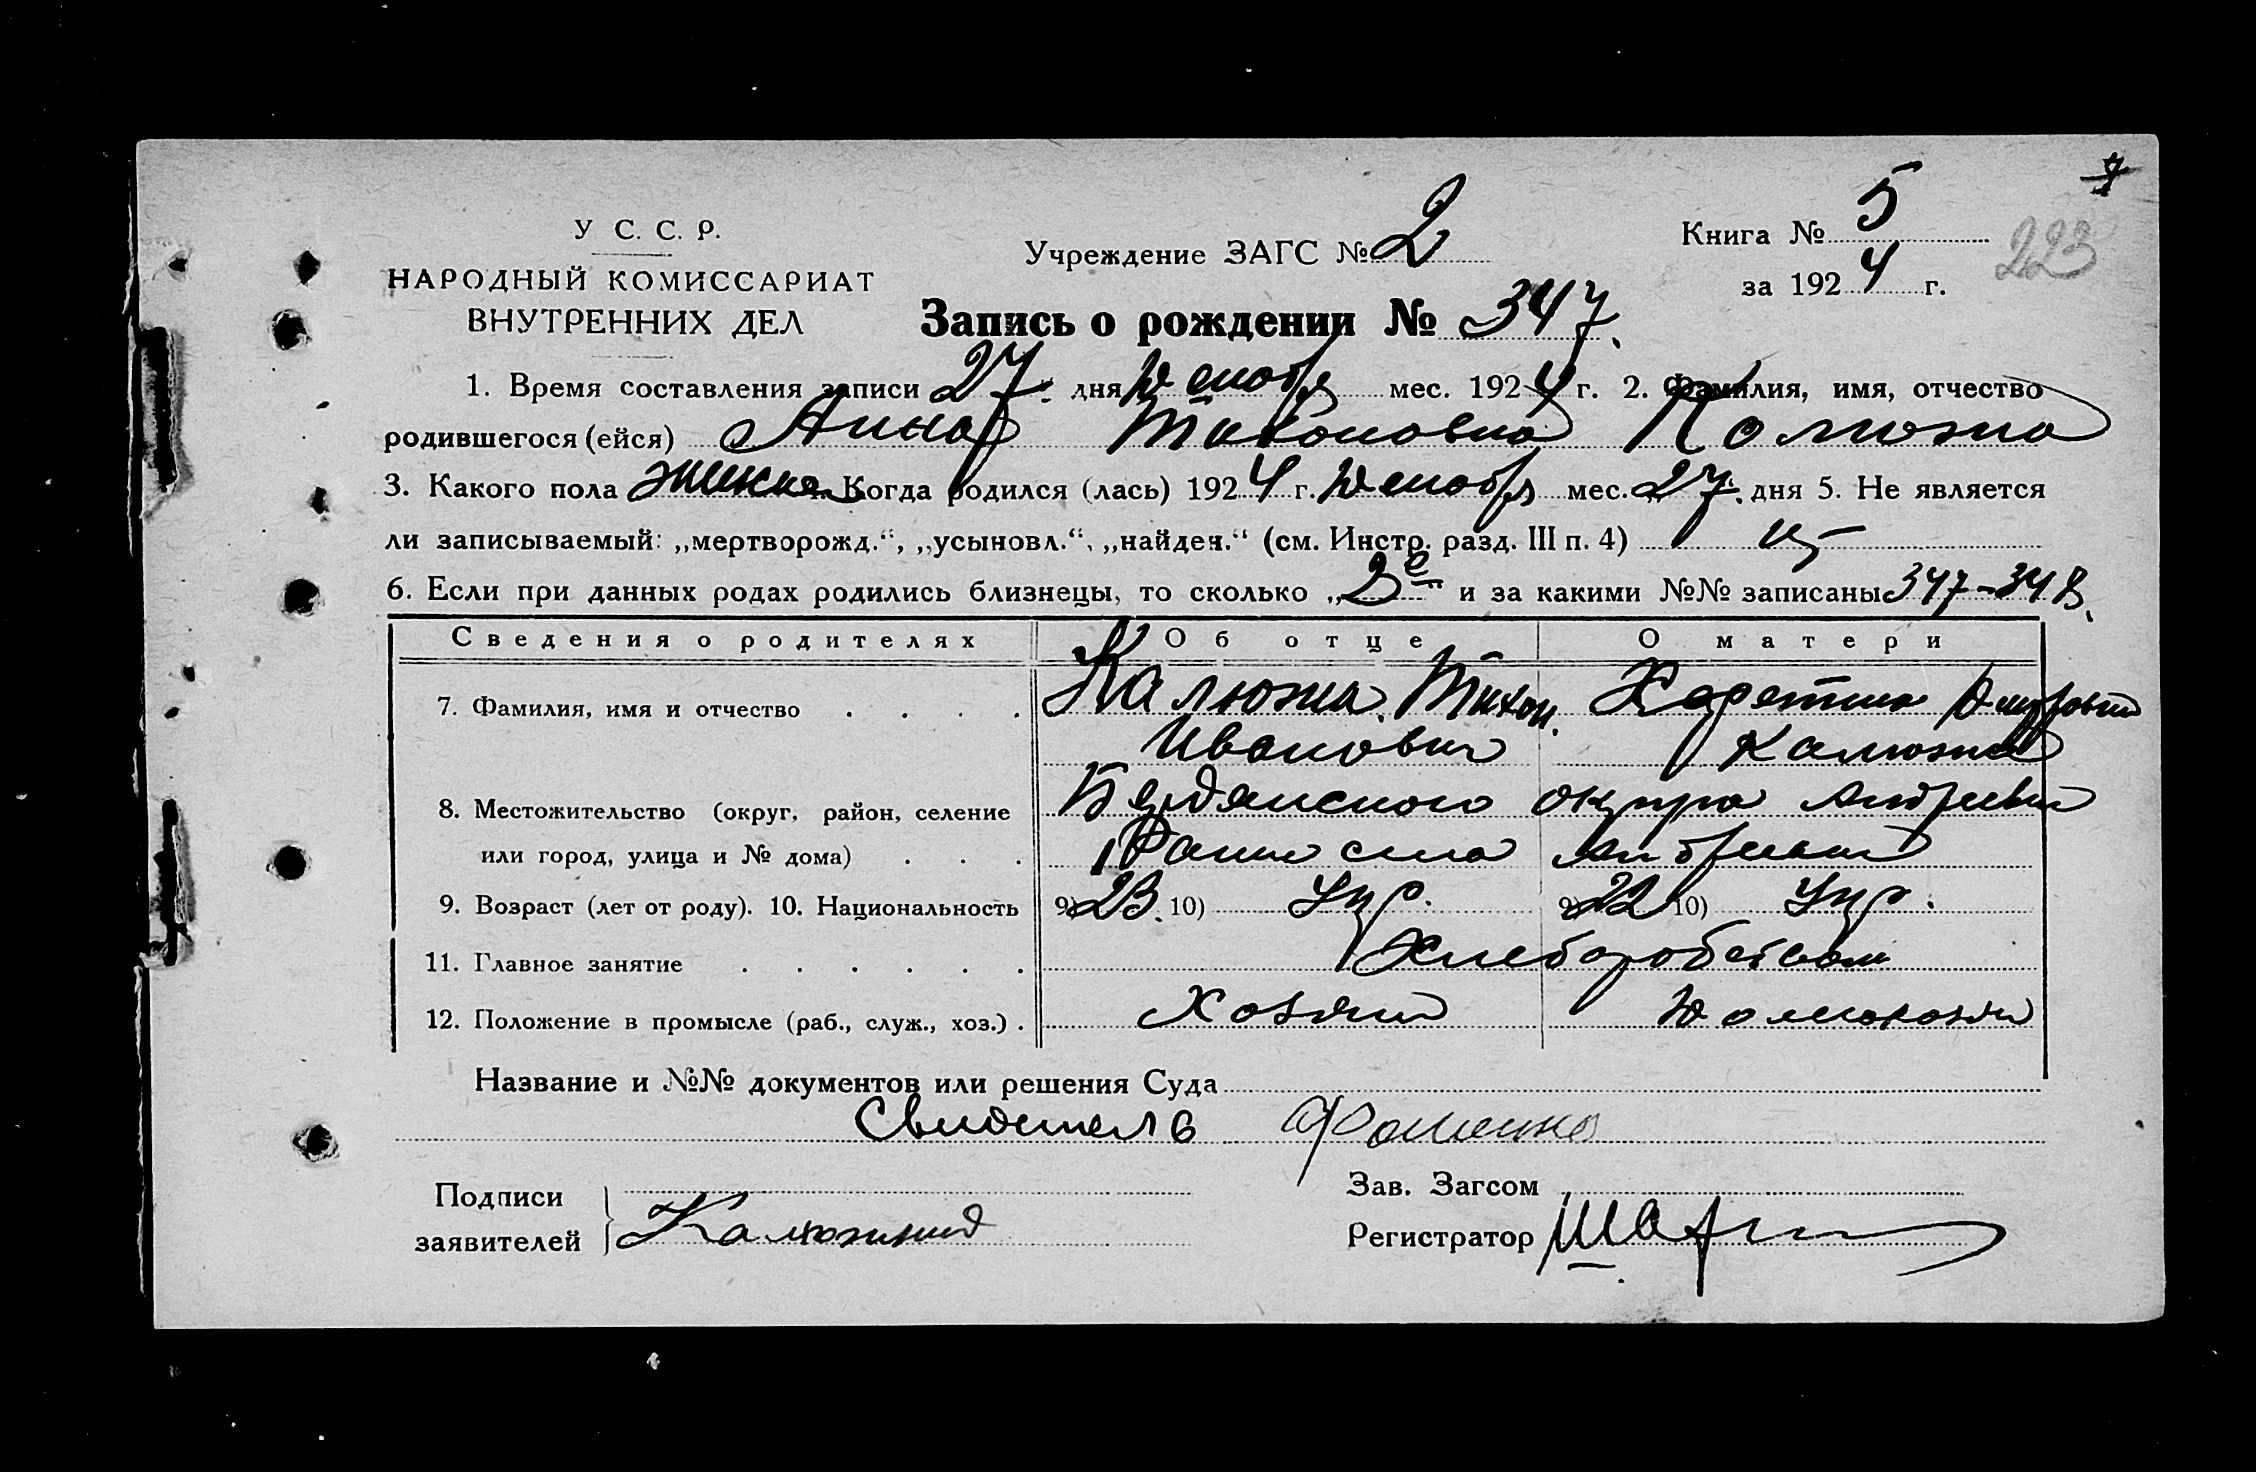 У С. С. Р.
НАРОДНЫЙ КОМИССАРИАТ
ВНУТРЕННИХ ДЕЛ
Учреждение ЗАГС № 2
Книга № 5
за 1924 г.
223
Запись о рождении № 347.
1. Время составления записи 27 дня мес. 1924 г. 2. Фамилия, имя, отчество
родившегося (ейся) Анна Тихоновна
3. Какого пола Когда родился (лась) 1924 г. мес. 27. дня 5. Не является
ли записываемый: „мертворожд.“, „усыновл.“, „найден.“ (см. Инстр. разд. III п. 4)
6. Если при данных родах родились близнецы, то сколько „2е“ и за какими №№ записаны 347-348.
Сведения о родителях Об отце О матери
7. Фамилия, имя и отчество . . . . Калюжн. Тихон.
Иванович
8. Местожительство (округ, район, селение Бердянского округа
или город, улица и № дома) . . . села
9. Возраст (лет от роду). 10. Национальность 9) 23. 10) Укр. 9) 22 10) Укр.
11. Главное занятие . . . . . . Хлеборобством
12. Положение в промысле (раб., служ., хоз.) . Хозяин
Название и №№ документов или решения Суда
Свидетель
Подписи
заявителей
Зав. Загсом
Регистратор